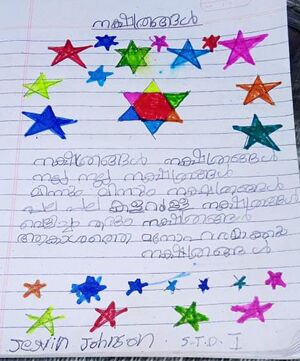 നക്ഷത്രങ്ങൾ
നക്ഷത്രങ്ങൾ നക്ഷത്രങ്ങൾ
നല്ല നല്ല നക്ഷത്രങ്ങൾ
മിന്നും മിന്നും നക്ഷത്രങ്ങൾ
പല പല കളറുള്ള നക്ഷത്രങ്ങൾ
വെളിച്ചം തരുന്ന നക്ഷത്രങ്ങൾ
ആകാശത്തെ മനോഹരമാക്കും
നക്ഷത്രങ്ങൾ
Johnson. S.T.D. I